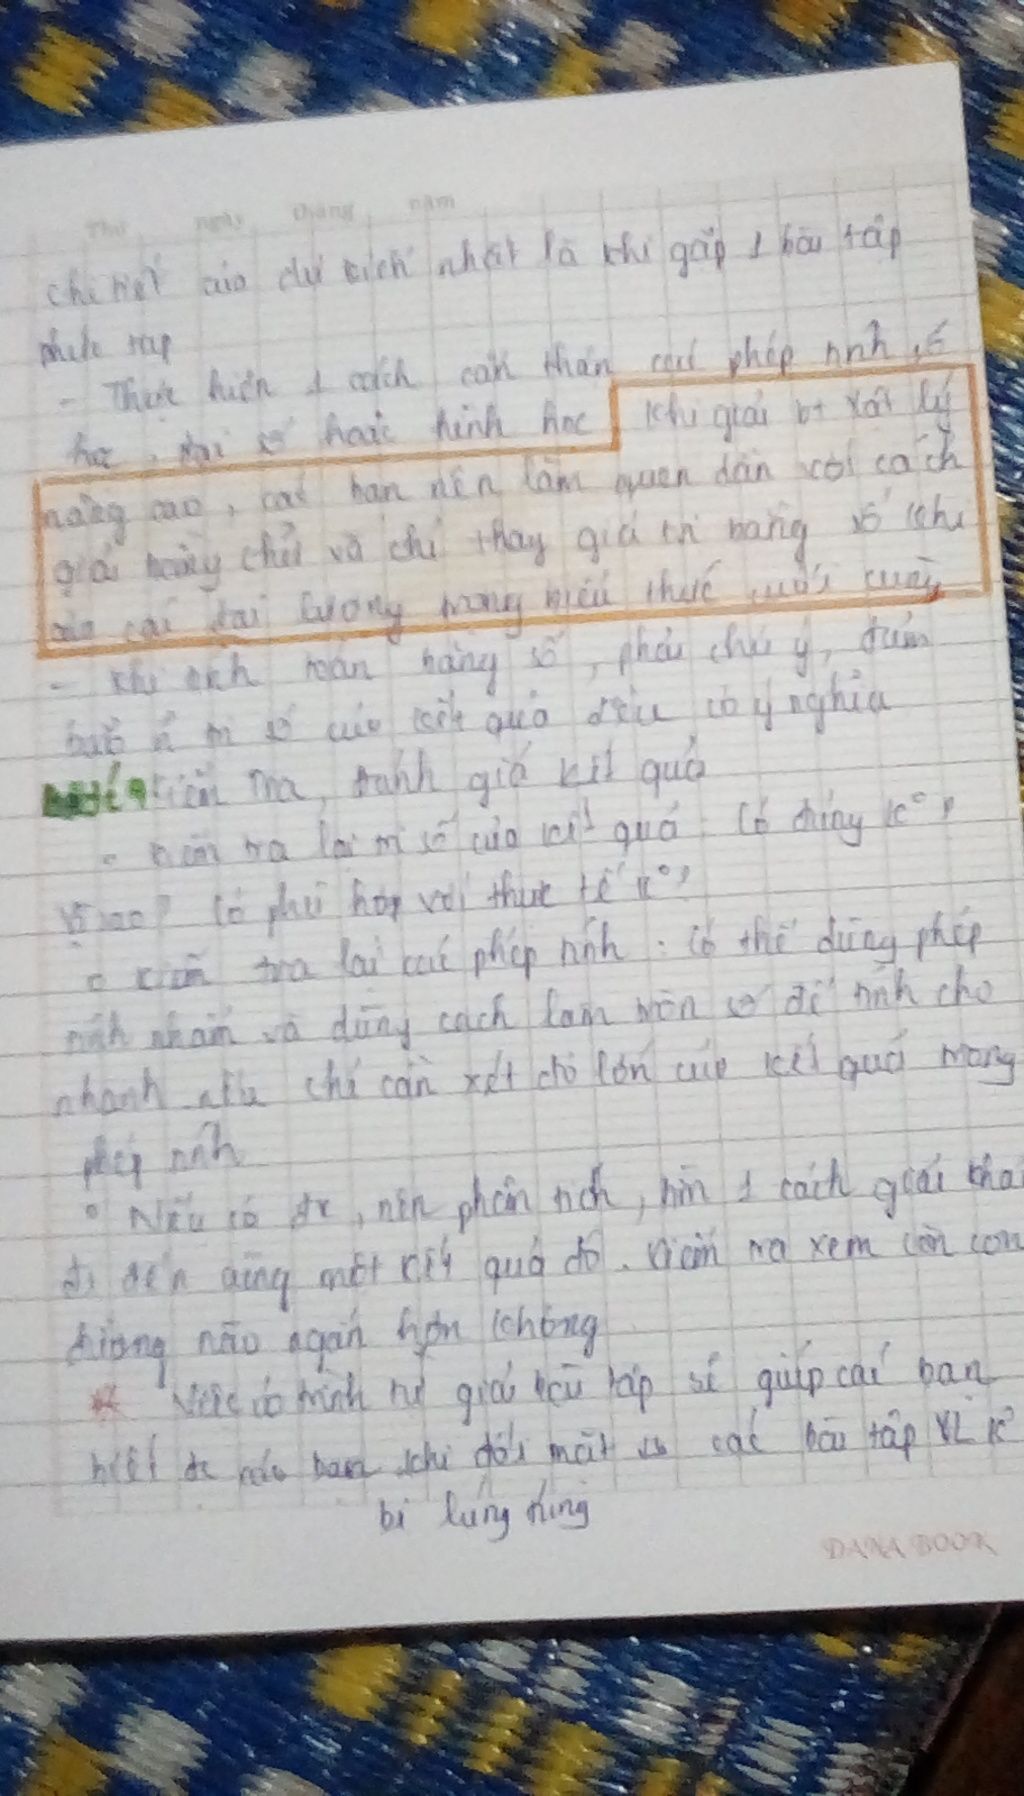 Thứ ngày tháng năm
chi tiết của dự kiến nhất là khi gặp 1 bài tập
phức tạp
- Thực hiện 1 cách cẩn thận các phép tính số
học, đại số hoặc hình học Khi giải bt Vật lý
nâng cao, các bạn nên làm quen dần với cách
giải bằng chữ và chỉ thay giá trị bằng số khi
của các đại lượng trong biểu thức cuối cùng
- Khi tính toán bằng số, phải chú ý, đảm
bảo trị số của kết quả đều có ý nghĩa
Kiểm tra, đánh giá kết quả
Kiểm tra lại trị số của kết quả: Có đúng k°?
Vì sao? Có phù hợp với thực tế k°?
Kiểm tra lại các phép tính: có thể dùng phép
tính nhẩm và dùng cách làm tròn số để tính cho
nhanh nếu chỉ cần xét độ lớn của kết quả trong
phép tính
Nếu có đk, nên phân tích, tìm 1 cách giải khá
đi đến cùng một kết quả đó. Kiểm tra xem còn con
đường nào ngắn hơn không
Việc có trình tự giải bài tập sẽ giúp các bạn
biết khi đối mặt các bài tập VL k°
bị lúng túng
DANA BOOK